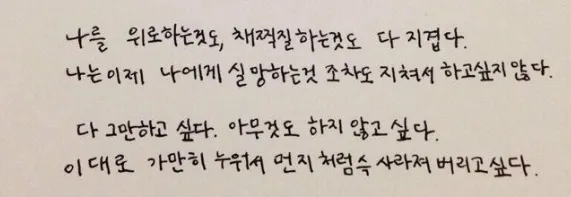 나를 위로하는것도, 채찍질하는것도 다 지겹다.
나는이제 나에게 실망하는것 조차도 지쳐서 하고싶지않다.
다 그만하고 싶다. 아무것도 하지 않고싶다.
이대로 가만히 누워서 먼지처럼슥 사라져버리고싶다.